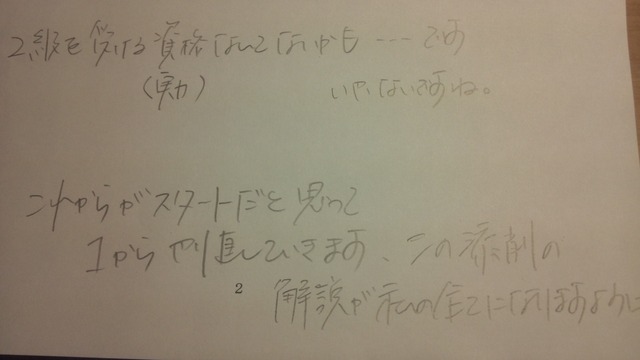 2級を受ける資格なんてないかも…です
(実力)
いや、ないですね。
これからがスタートだと思って
1からやり直していきます、この添削の
2
解説が私の全てになりますように